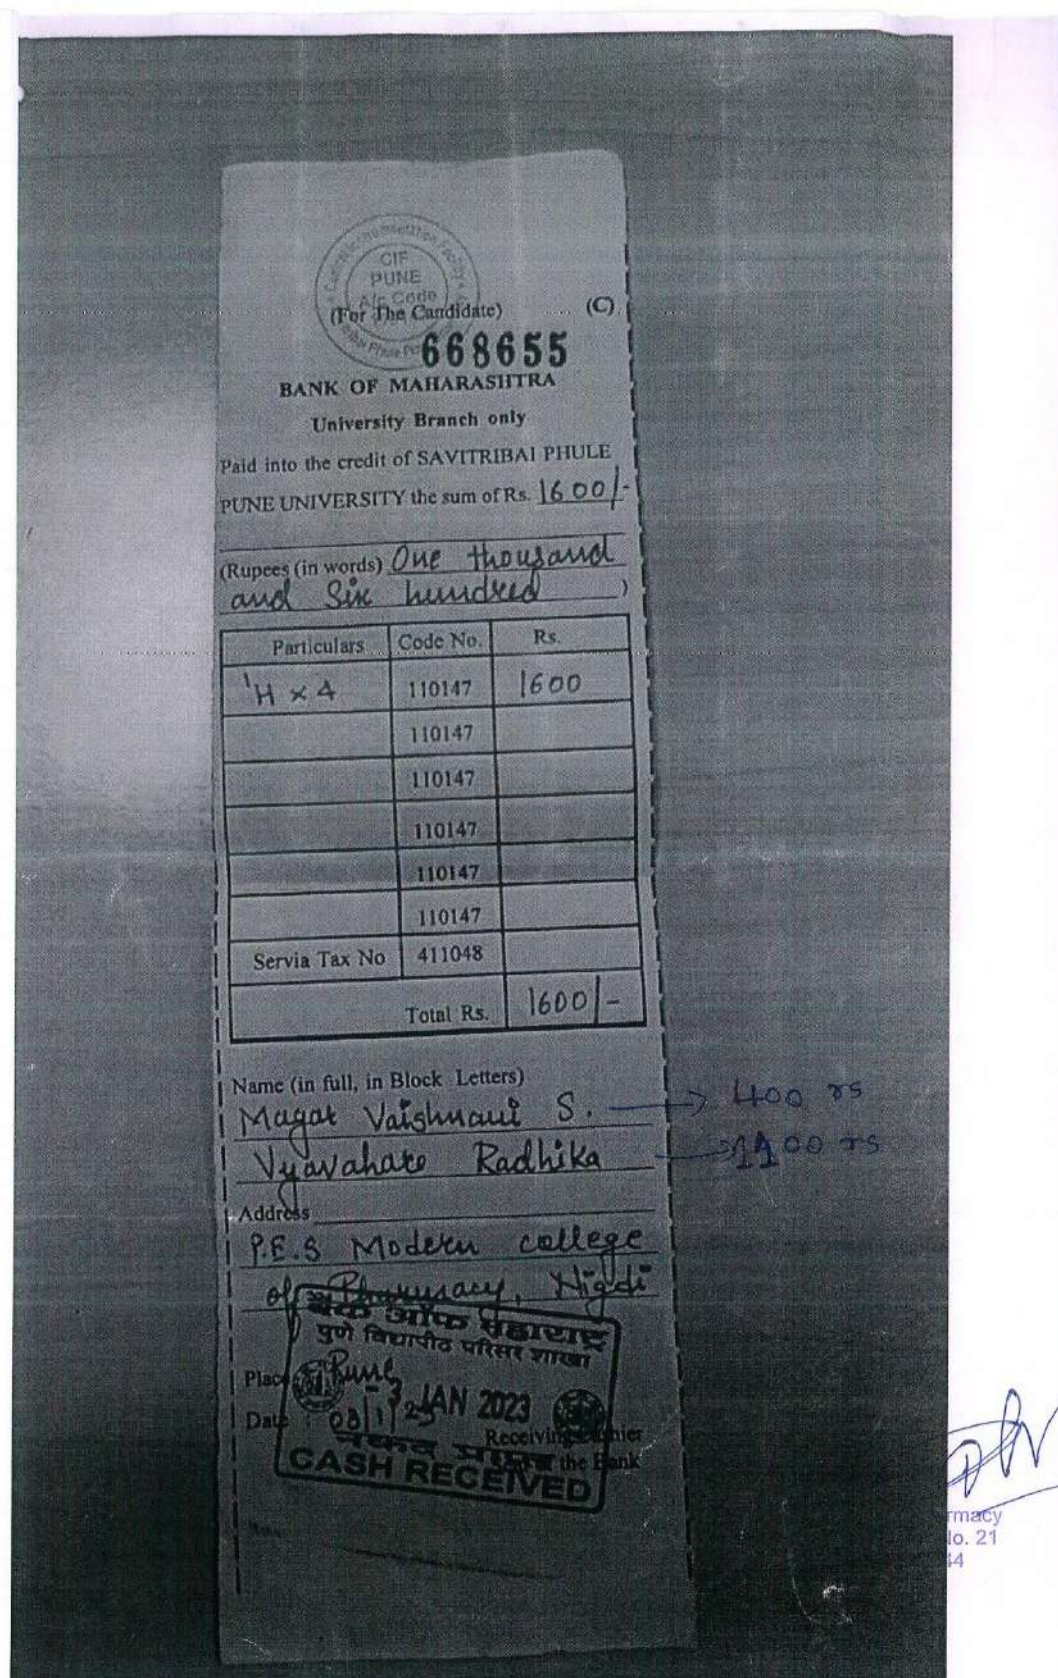 Central Instrumentation Facility
CIF
PUNE
A/c Code
(For The Candidate) (C)
668655
BANK OF MAHARASHTRA
University Branch only
Paid into the credit of SAVITRIBAI PHULE
PUNE UNIVERSITY the sum of Rs. 1600/-
(Rupees (in words) One thousand
and Six hundred )
Particulars Code No. Rs.
¹H × 4 110147 1600
110147
110147
110147
110147
110147
Servia Tax No 411048
Total Rs. 1600/-
Name (in full, in Block Letters)
Magar Vaishnavi S. → 400 rs
Vyavahare Radhika →
Address
P.E.S Modern college
of Pharmacy, Nigdi
बैंक ऑफ महाराष्ट्र
पुणे विद्यापीठ परिसर शाखा
Place Pune
- 3 JAN 2023
Date : 03/1/23
Receiving Cashier
the Bank
CASH RECEIVED
rmacy
lo. 21
44